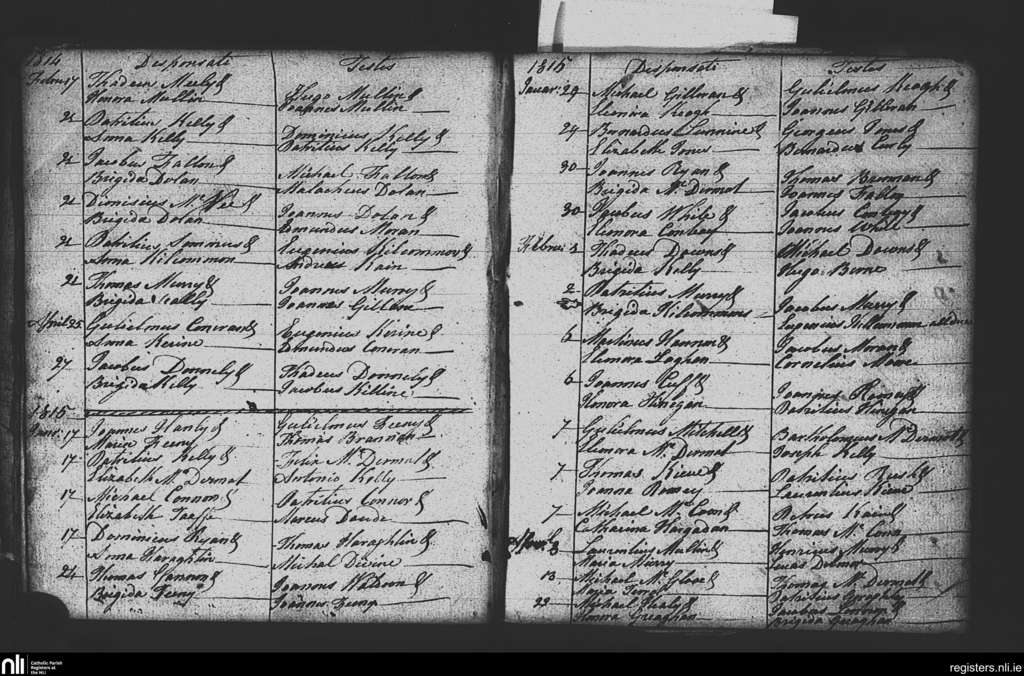 1814 Desponsati Testes
Februy Thadeus Meely &
Honora Mullin
Hugo Mullin &
Joannes Mullin
21 Patritius Kelly &
Anna Kelly
Dominicus Kelly &
Patritius Kelly
21 Jacobus Fallon &
Brigida Dolan
Michael Fallon &
Malacheus Dolan
21 Dionisius Mc
Brigida Dolan
Joannes Dolan &
Edmundus Moran
21 Patritius Simmons &
Anna Kilcommon
Eugenius Kilcommon &
Andreas Kain
21 Thomas Murry &
Brigida
Joannes Murry &
Joannes
April 25 Gulielmus Conrans &
Anna Kerine
Eugenius Kerine &
Edmundus Conran
27 Jacobus Donnely &
Brigida Kelly
Thadeus Donnely &
Jacobus Killine
1815
Janr. 17 Joannes Hanly &
Maria Feeny
Gulielmus Feeny &
Thomas Brannon
17 Patritius Kelly &
Elizabeth Mc Dermot
Felix Mc Dermot &
Antonio Kelly
17 Michael Connor &
Elizabeth Taafe
Patritius Connor &
Marcus Doude
17 Dominicus Ryan &
Anna Haraghtin
Thomas Haraghtin &
Michal Divine
24 Thomas Hannon &
Brigida Feeny
Joannes Waldron &
Joannes Feeny
1815 Desponsati Testes
Januar: 29 Michael Gillivan &
Eleonora Keogh
Gulielmus Keogh &
Joannes Gillivan
29 Bernardus &
Elizabeth Jones
Georgeus Jones &
Bernardus Curly
30 Joannes Ryan &
Brigida Mc Dermot
Thomas &
Joannes Fallon
30 Jacobus White &
Eleonora Conboy
Jacobus Conboy &
Joannes White
Febru: 2 Thadeus Downs &
Brigida Kelly
Michael Downs &
Hugo Birne
2 Patritius Murry &
Brigida Kilcommons
Jacobus Murry &
Eugenius
6 Martinus Hannon &
Eleonora Loghan
Jacobus Moran &
Cornelius Moore
6 Joannes Cuff &
Honora Finegan
Joannes &
Patritius Finegan
7 Gulielmus Mitchell &
Eleonora Mc Dermot
Bartholomeus Mc Dermott &
Joseph Kelly
7 Thomas Kieve &
Joanna
Patritius Rush &
Laurentius Kieve
7 Michael Mc &
Catharina Hargadan
Petrus &
Thomas Mc
8 Laurentius Mullin &
Maria Murry
Henricus Murry &
Lucas
13 Michael Mc &
Maria
Thomas Mc Dermot &
Patritius
22 Michael Healy &
Honora Geraghan
Jacobus &
Brigida Geraghan
nli Catholic Parish
Registers at
the NLI
registers.nli.ie